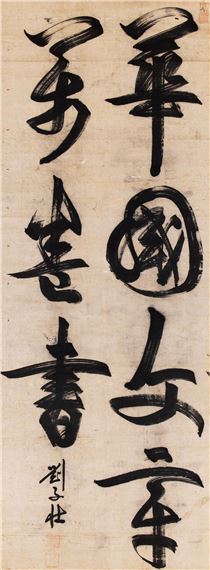 華國文章
萬卷書
劉子壯